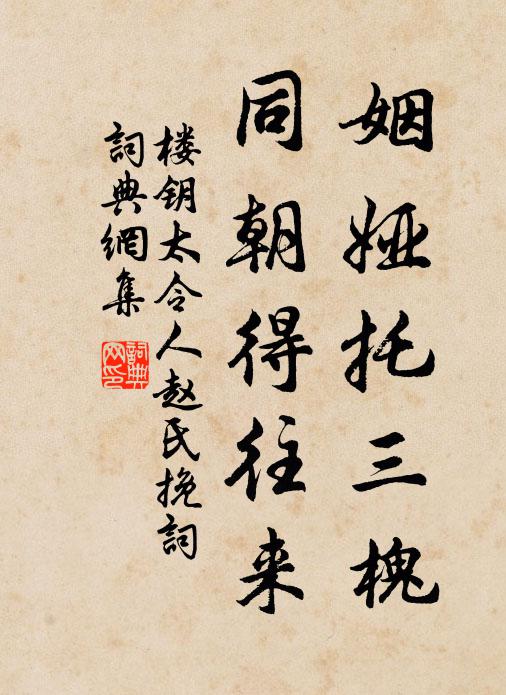 姻娅托三槐
同朝得往来
楼钥太令人赵氏挽词
詞典網集
詞典網印